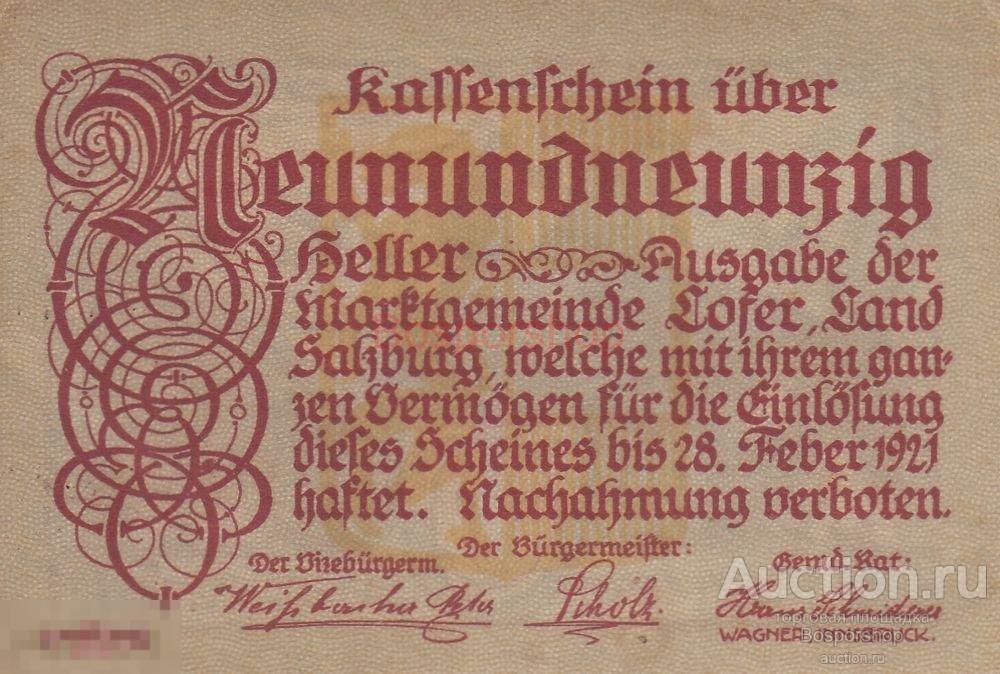 Kassenschein über
Neunundneunzig
Heller Ausgabe der
Marktgemeinde Lofer, Land
Salzburg, welche mit ihrem gan-
zen Vermögen für die Einlösung
dieses Scheines bis 28. Feber 1921
haftet. Nachahmung verboten.
Der Vizebürgerm. Der Bürgermeister: Gemd. Rat:
Weißbacher Scholz Hans Schmidtner
WAGNER, INNSBRUCK.
Auction.ru
торговая площадка
Bosporshop
auction.ru